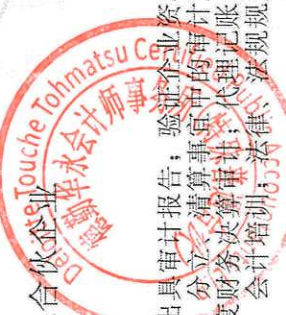 合伙企业
出具审计报告；验证企业资
分立、清算事宜中的审计
度财务决算审计；代理记账
会计培训；法律、法规规
Touche Tohmatsu Public
德勤华永会计师事务